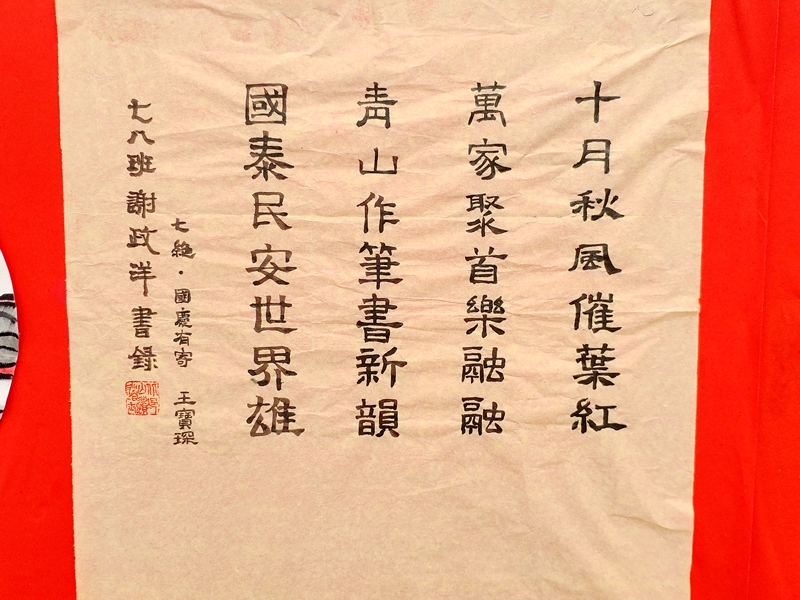 十月秋風催葉紅
萬家聚首樂融融
青山作筆書新韻
國泰民安世界雄
七絶·國慶有寄 王寶琛
七八班 謝政洋書錄